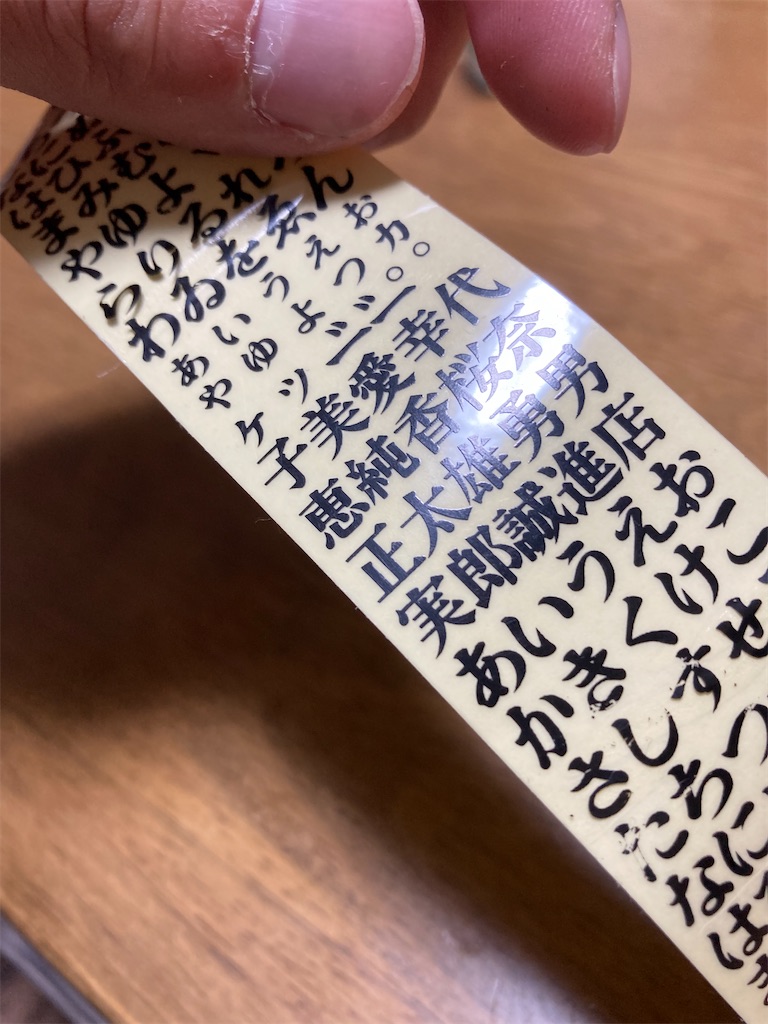 はひふ
まみむ
やゆよ
らりるれ
わゐをゑん
あいうえお
やゆよつカ
ケツ゛゛。。
ーー
子美愛幸代
恵純香桜奈
正太雄勇男
実郎誠進店
あいうえお
かきくけこ
さしすせ
たちつ
なに
は